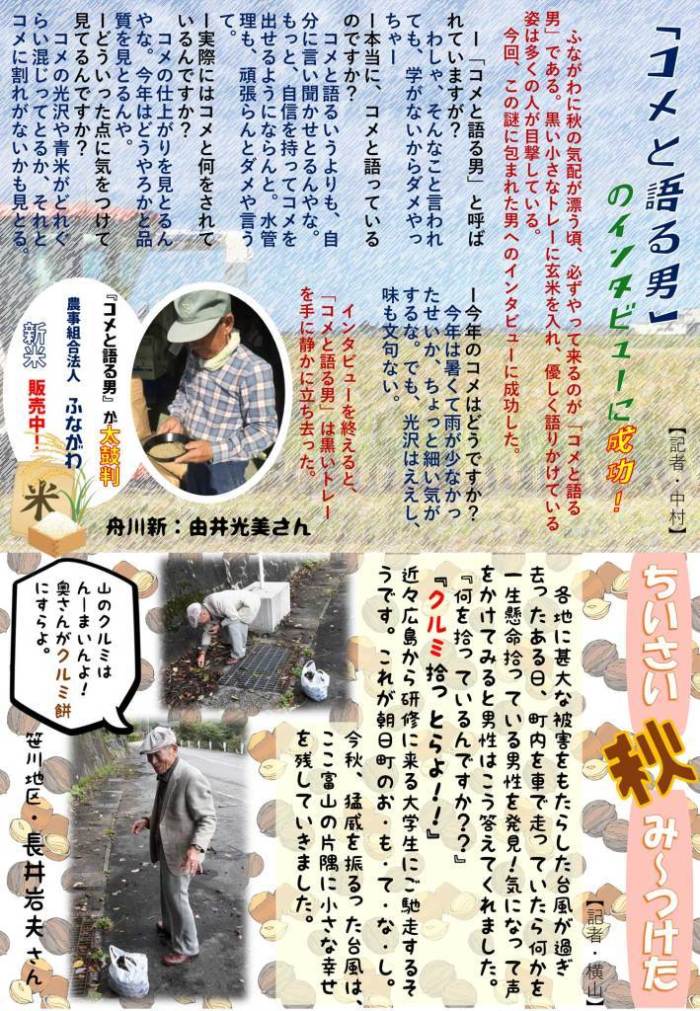 「コメと語る男」
のインタビューに成功!
【記者・中村】
ふながわに秋の気配が漂う頃、必ずやって来るのが「コメと語る
男」である。黒い小さなトレーに玄米を入れ、優しく語りかけている
姿は多くの人が目撃している。
今回、この謎に包まれた男へのインタビューに成功した。
ー「コメと語る男」と呼ば
れていますが?
わしゃ、そんなこと言われ
ても、学がないからダメやっ
ちゃー
ー本当に、コメと語っている
のですか?
コメと語るいうよりも、自
分に言い聞かせとるんやな。
もっと、自信を持ってコメを
出せるようにならんと。水管
理も、頑張らんとダメや言う
て。
ー実際にはコメと何をされて
いるんですか?
コメの仕上がりを見とるん
やな。今年はどうやろかと品
質を見とるんや。
ーどういった点に気をつけて
見てるんですか?
コメの光沢や青米がどれぐ
らい混じってとるか、それと
コメに割れがないかも見とる。
ー今年のコメはどうですか?
今年は暑くて雨が少なかっ
たせいか、ちょっと細い気が
するな。でも、光沢はええし、
味も文句ない。
インタビューを終えると、
「コメと語る男」は黒いトレー
を手に静かに立ち去った。
『コメと語る男』が太鼓判
農事組合法人 ふながわ
新米 販売中!
米
舟川新:由井光美さん
ちいさい秋み〜つけた
【記者・横山】
各地に甚大な被害をもたらした台風が過ぎ
去ったある日、町内を車で走っていたら何かを
一生懸命拾っている男性を発見!気になって声
をかけてみると男性はこう答えてくれました。
『何を拾っているんですか??』
『クルミ拾っとらよ!!』
近々広島から研修に来る大学生にご馳走するそ
うです。これが朝日町のお・も・て・な・し。
今秋、猛威を振るった台風は、
ここ富山の片隅に小さな幸せ
を残していきました。
山のクルミは
んーまいんよ!
奥さんがクルミ餅
にすらよ。
笹川地区・長井岩夫さん